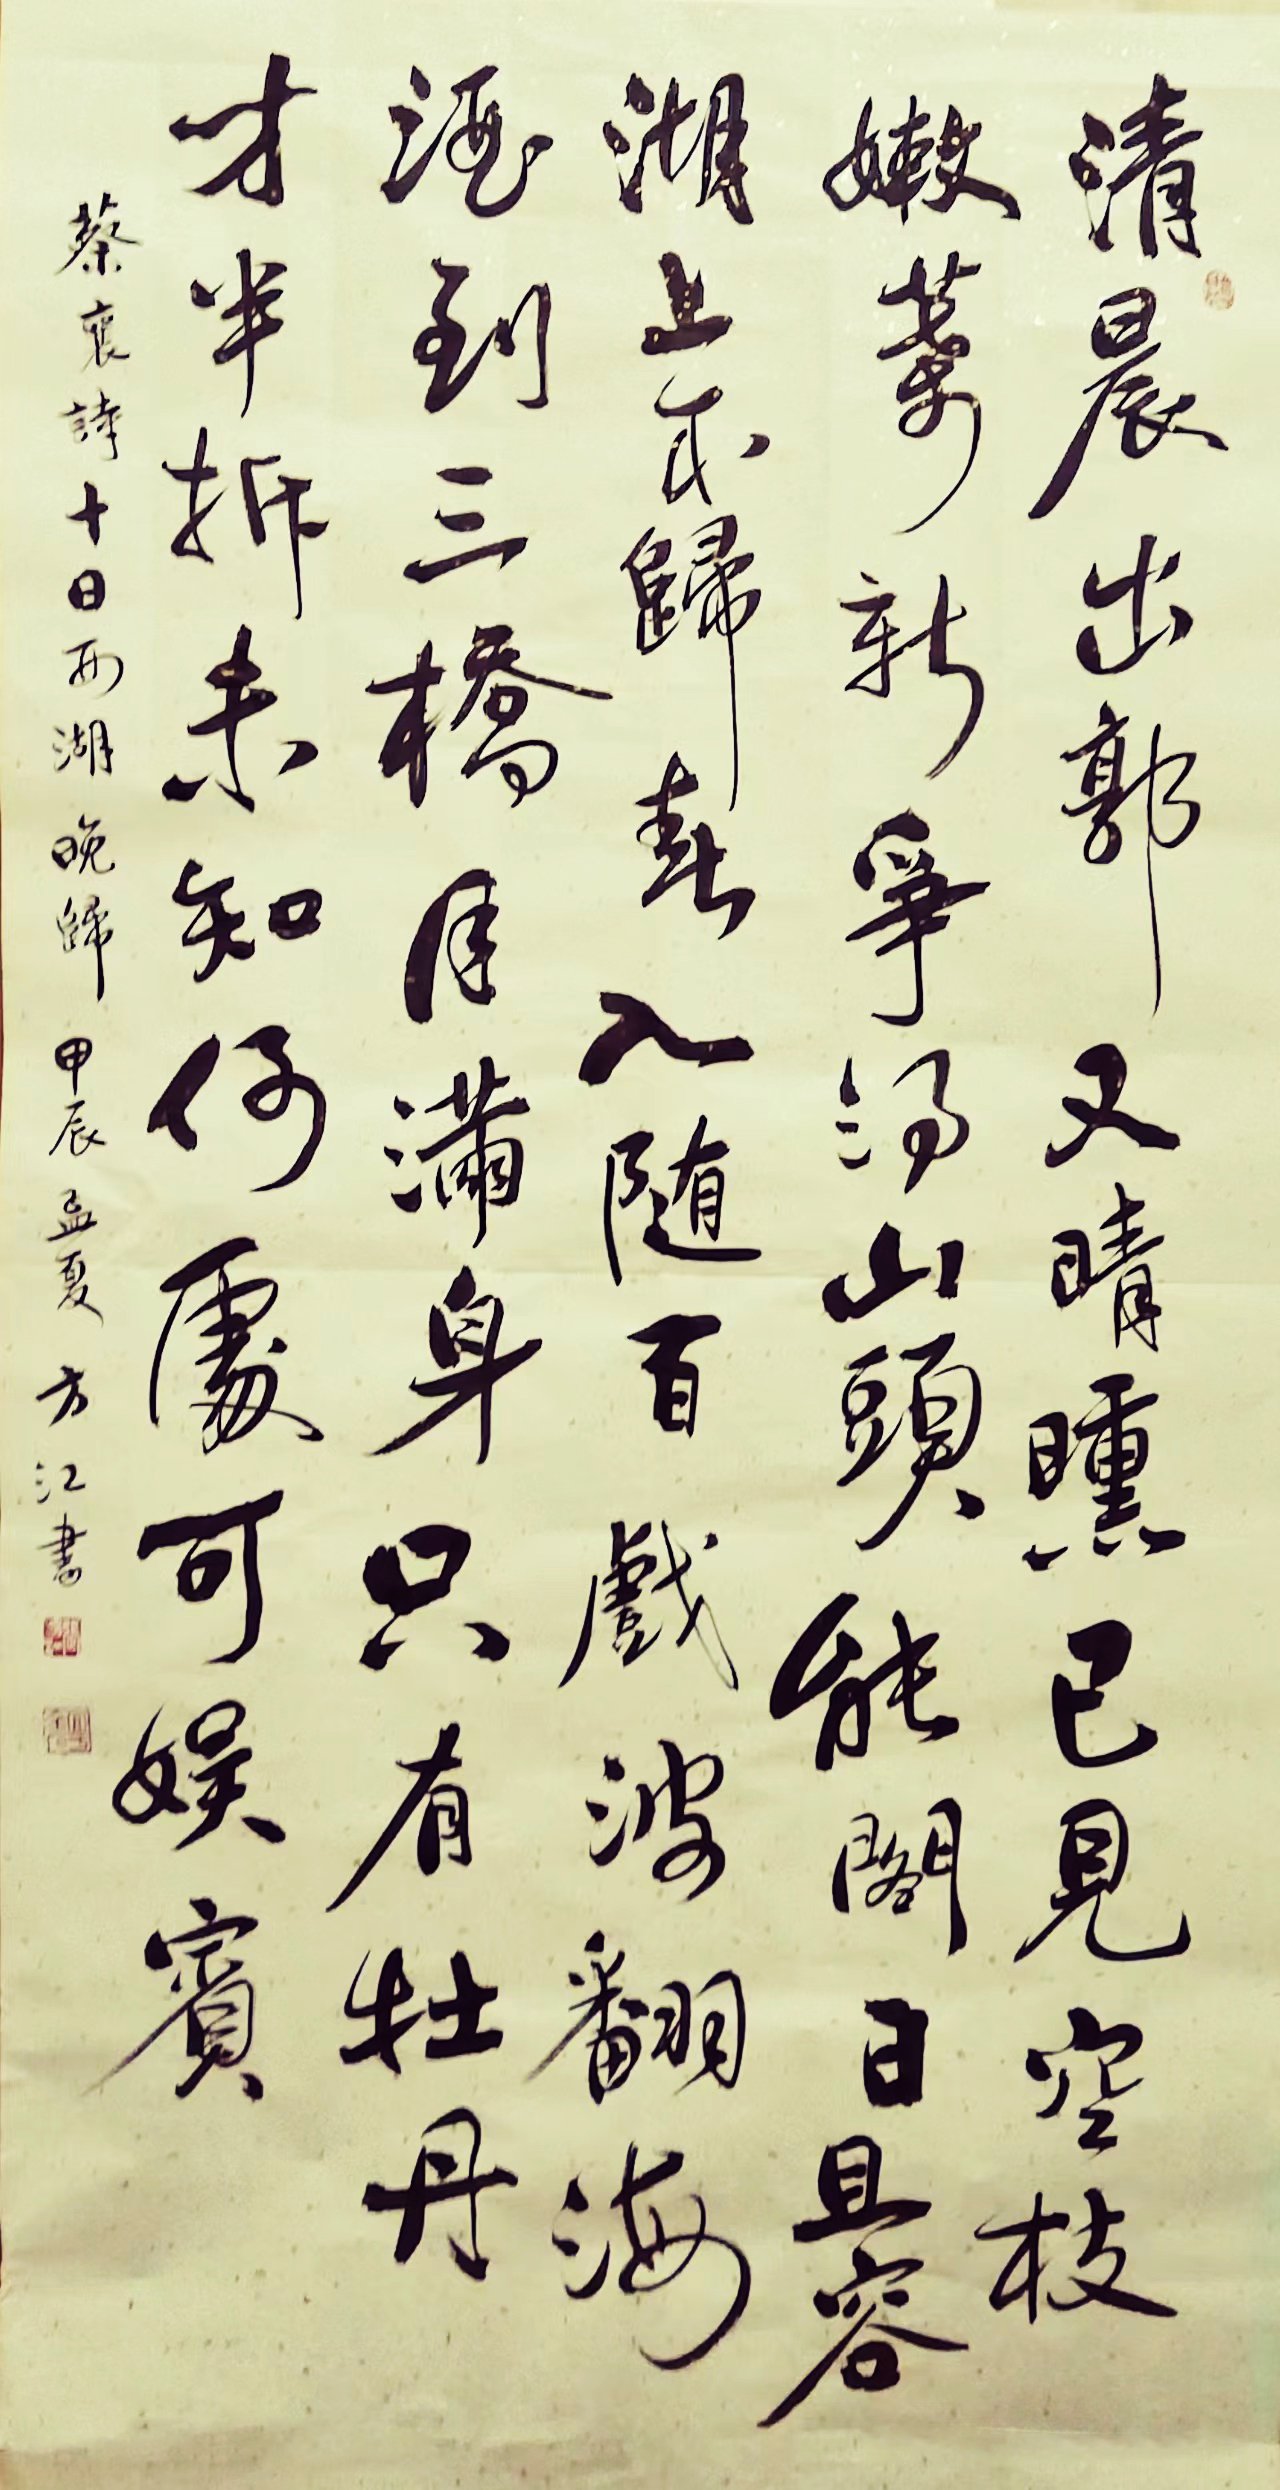 清晨出郭又晴曛已見空枝
嫩萼新爭得山頭能閣日且容
湖上不歸春入随百戲波翻海
酒到三橋月满身只有牡丹
才半拆未知何處可娱賓
蔡襄詩十日西湖晚歸 甲辰孟夏 方江書